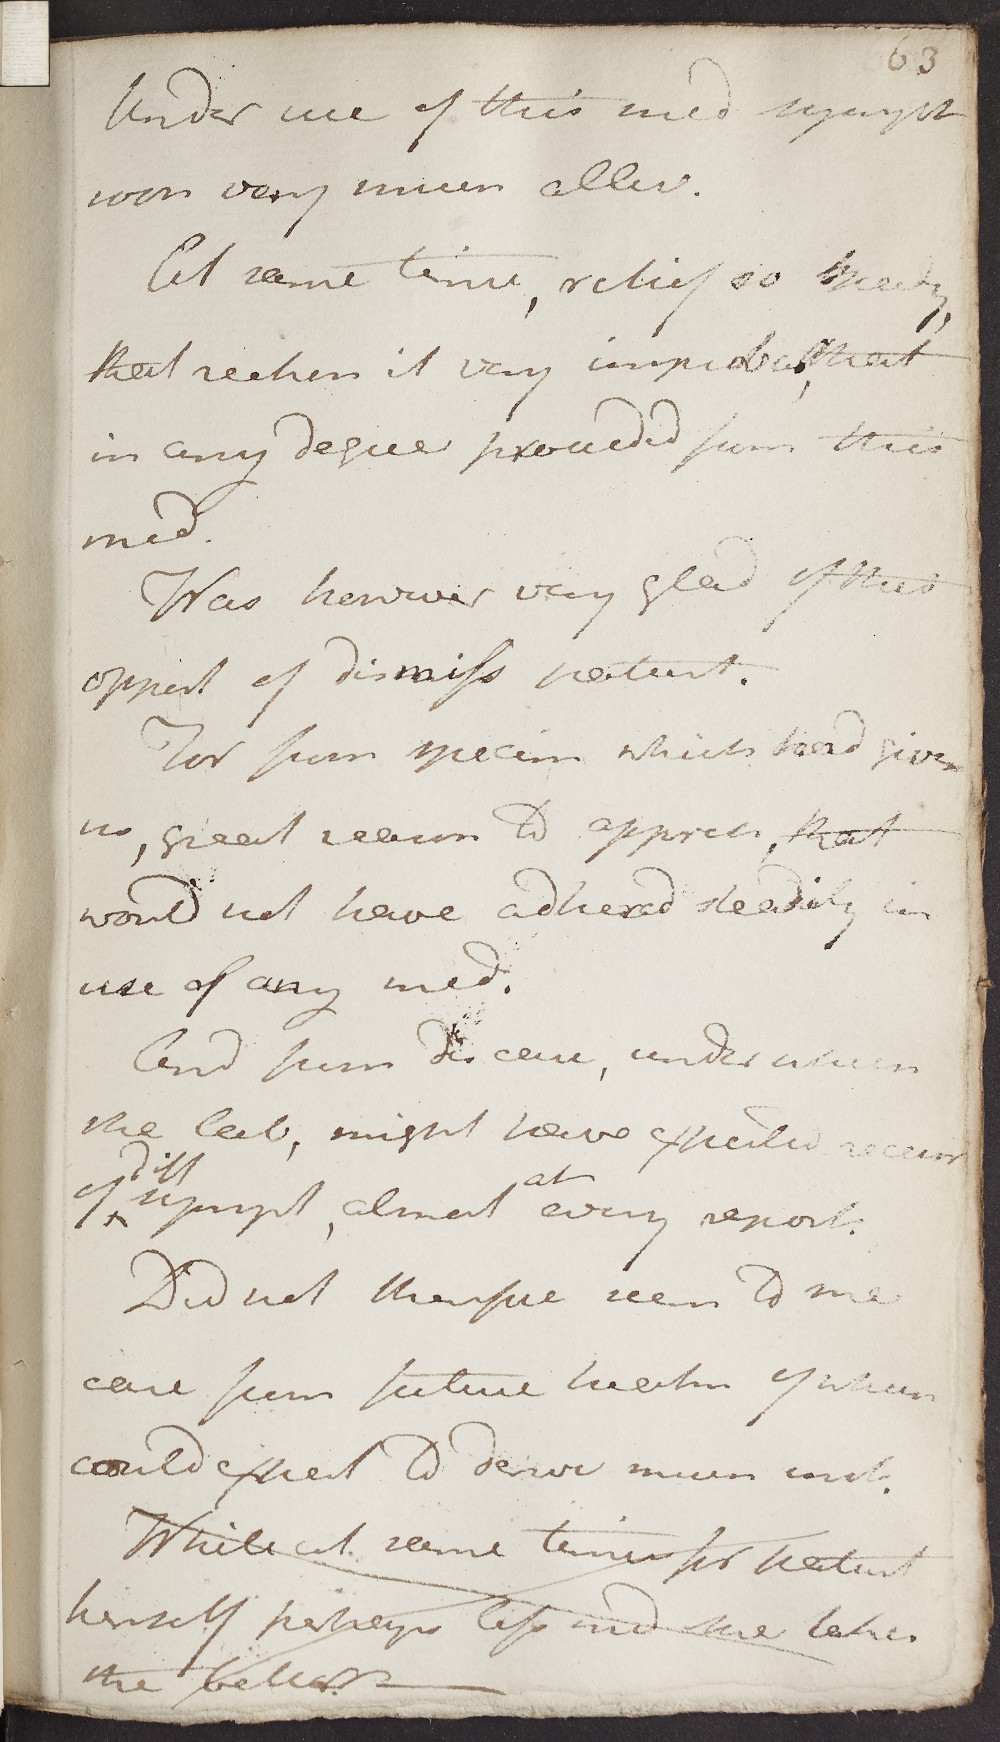 63
Under use of this med sympt
won very much allev.
At same time, relief so speedy,
that reckon it very improb, that
in any degree proceeded from this
med.
Was however very glad of this
opport of dismiss patient.
For from specim which had given
us, great reason to appreh, that
would not have adhered steadily in
use of any med.
And from disease, under which
she lab, might have expected recurr
of diff sympt, almost at every report.
Did not therefore seem to me
case from future treatm of which
could expect to derive much inst.
While at same time for patient
herself perhaps less med she takes
the better.